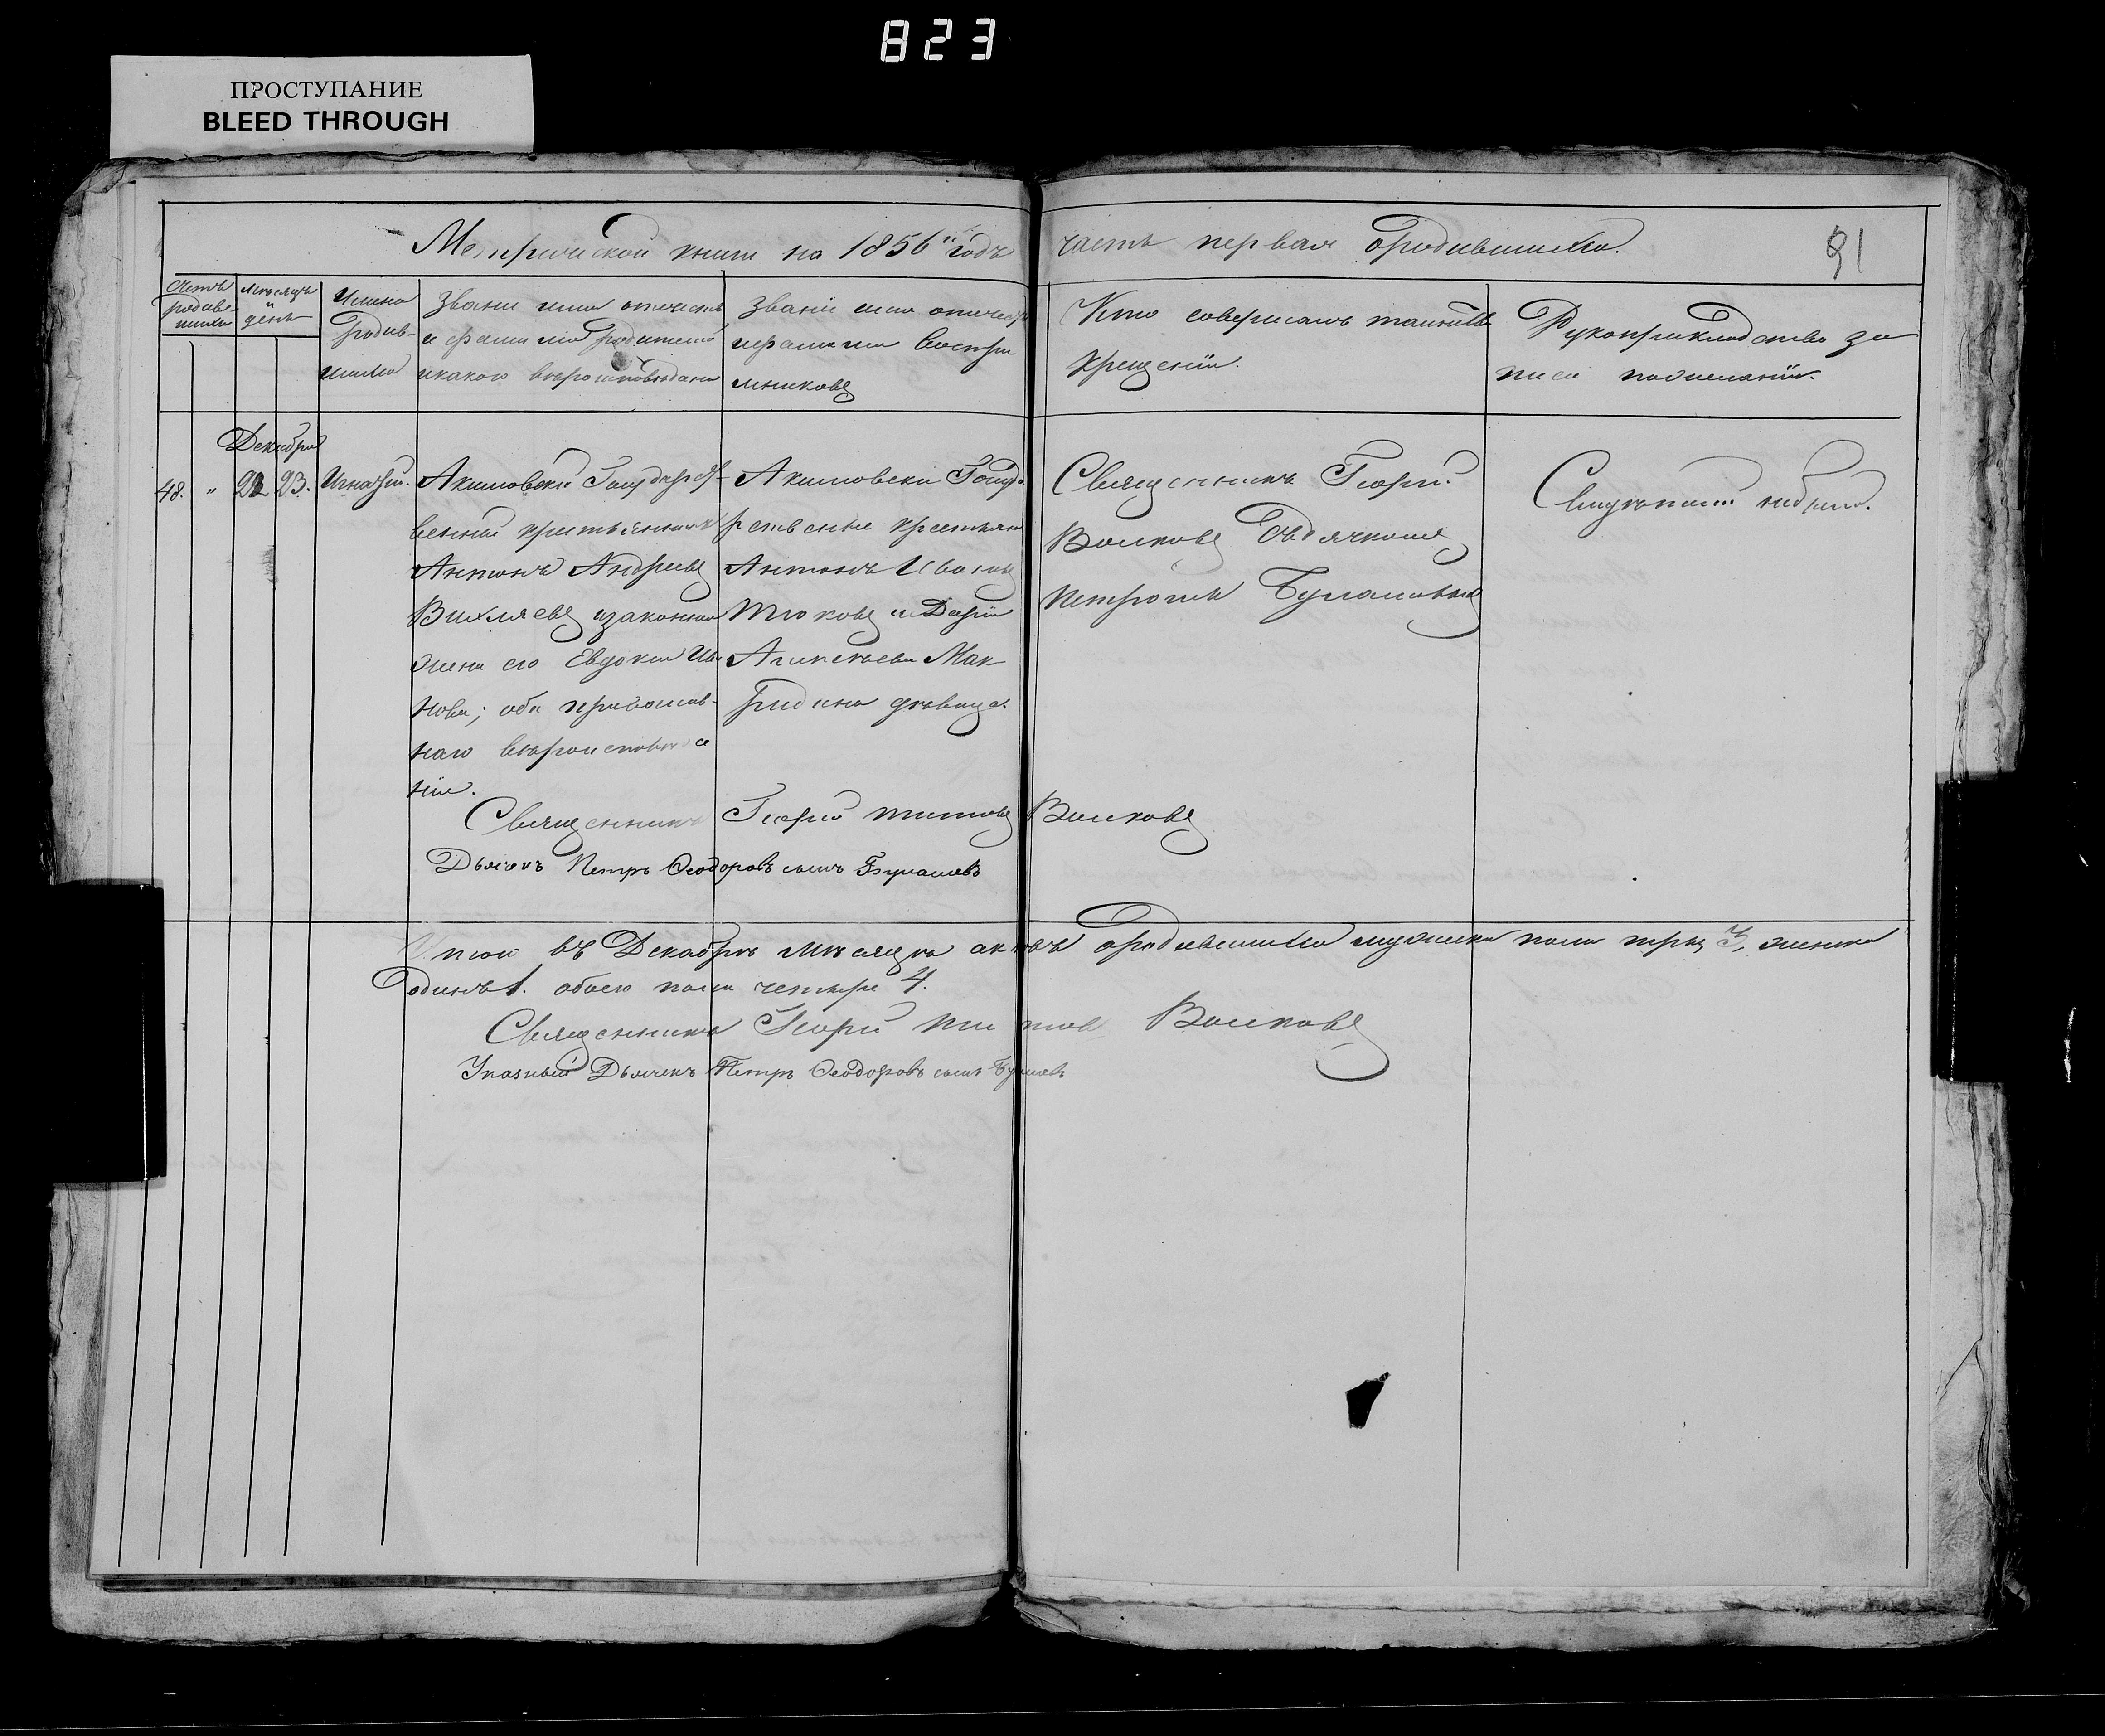 823
ПРОСТУПАНИЕ
BLEED THROUGH
Метрической книги на 1856й годъ часть первая о родившихся.
91
Счетъ родив-шихся
Мѣсяцъ и день
Имена
Родив-
шихся
Званіе имя отчество
и фамилія родителей
и какого вѣроисповѣданія
Званіе имя отчество
и фамилія воспри
мниковъ
Кто совершалъ таинство
крещенія.
Рукоприкладство за
писи по желанію.
Декабря
48. " 22 23. Игнатій.
Акимовски Государст-
венный крестьянинъ
Антонъ Андреевъ
Вихляевъ и законная
жена его Евдокія Ива
нова; оба православ-
наго вѣроисповѣда
нія.
Акимовски Госуда
рственные крестьяне
Антонъ Ивановъ
Тюковъ и Дарія
Алексѣева Мак
дѣвица.
Священникъ Георгій
Волковъ съ дьячкомъ
Петромъ
Священникъ Георгій Титовъ Волковъ
Дьячекъ Петръ Ѳеодоровъ сынъ
Итого въ Декабрѣ мѣсяцѣ актовъ о родившихся мужеска пола три 3, женска
одинъ 1. обоего пола четыре 4.
Священникъ Георгій Титовъ Волковъ
Указный Дьячекъ Петръ Ѳеодоровъ сынъ